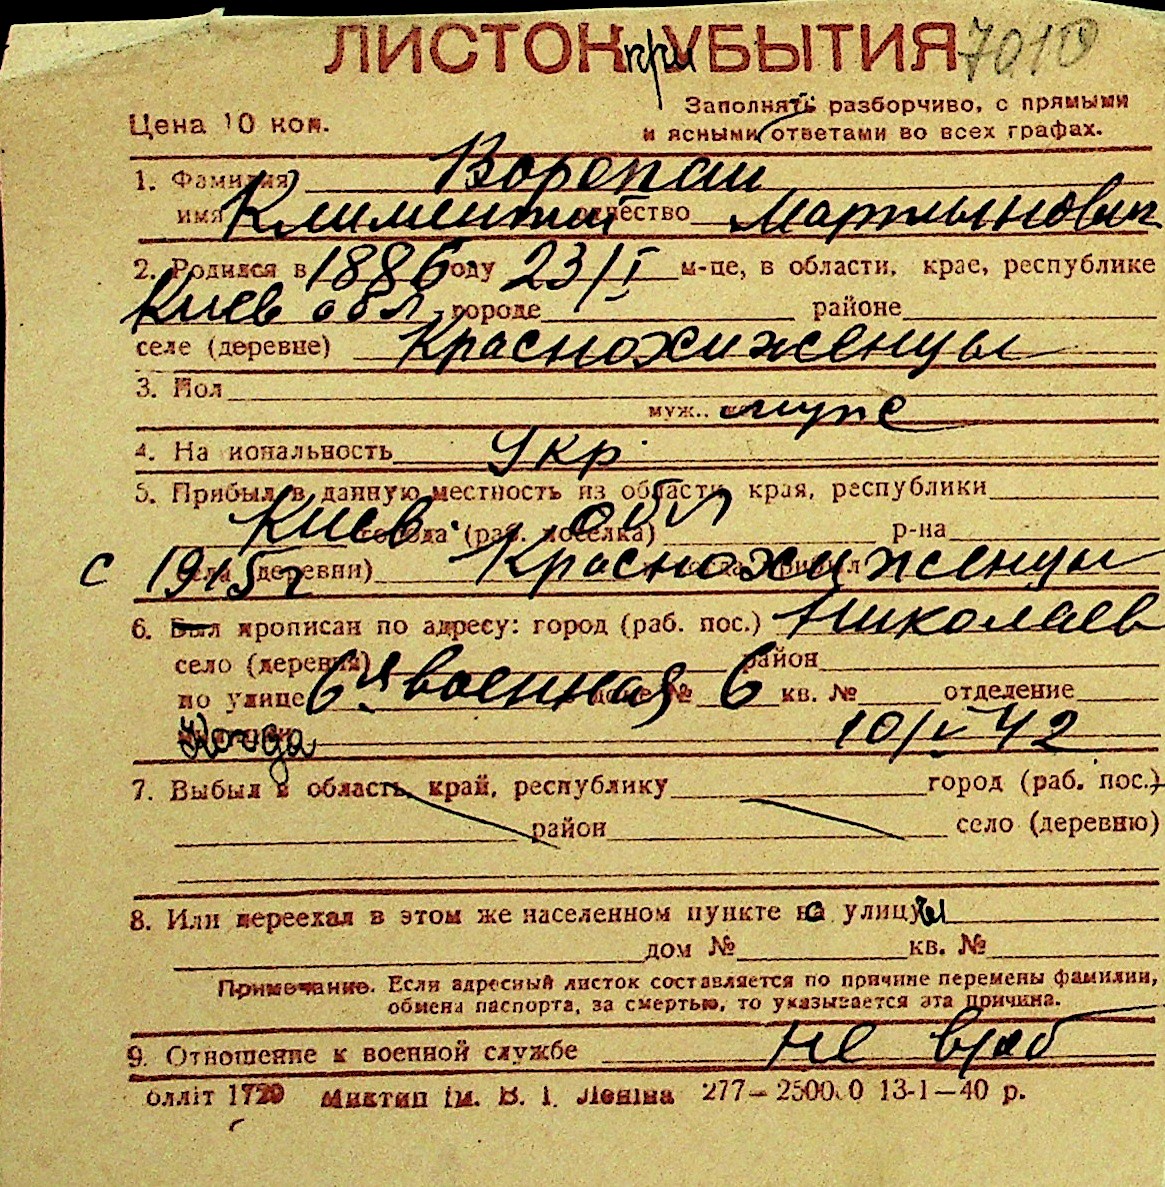 ЛИСТОК при УБЫТИЯ 7010
Цена 10 коп.
Заполнять разборчиво, с прямыми
и ясными ответами во всех графах.
1. Фамилия Воропай
имя Климентий отчество Мартынович
2. Родился в 1886 году 23/I м-це, в области, крае, республике
Киев обл городе районе
селе (деревне) Краснохиженцы
3. Пол
муж..
4. На иональность Укр
5. Прибыл в данную местность из области, края, республики
Киев. обл города (раб. поселка) р-на
с 1915 г села (деревни) Краснохиженцы
6. Был прописан по адресу: город (раб. пос.) Николаев
село (деревня) район
по улице 6я военная доме № 6 кв. № отделение
Когда 10/V 42
7. Выбыл в область, край, республику город (раб. пос.)
район село (деревню)
8. Или переехал в этом же населенном пункте на улицу
дом № кв. №
Примечание. Если адресный листок составляется по причине перемены фамилии,
обмена паспорта, за смертью, то указывается эта причина.
9. Отношение к военной службе не
олліт 1720 Миктип ім. В. І. Леніна 277—2500.0 13-1—40 р.